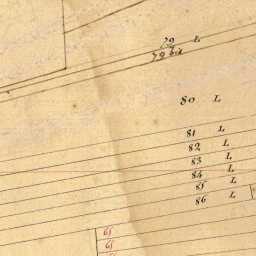 79 L
79 bis
80 L
81 L
82 L
83 L
84 L
85 L
86 L
61
61